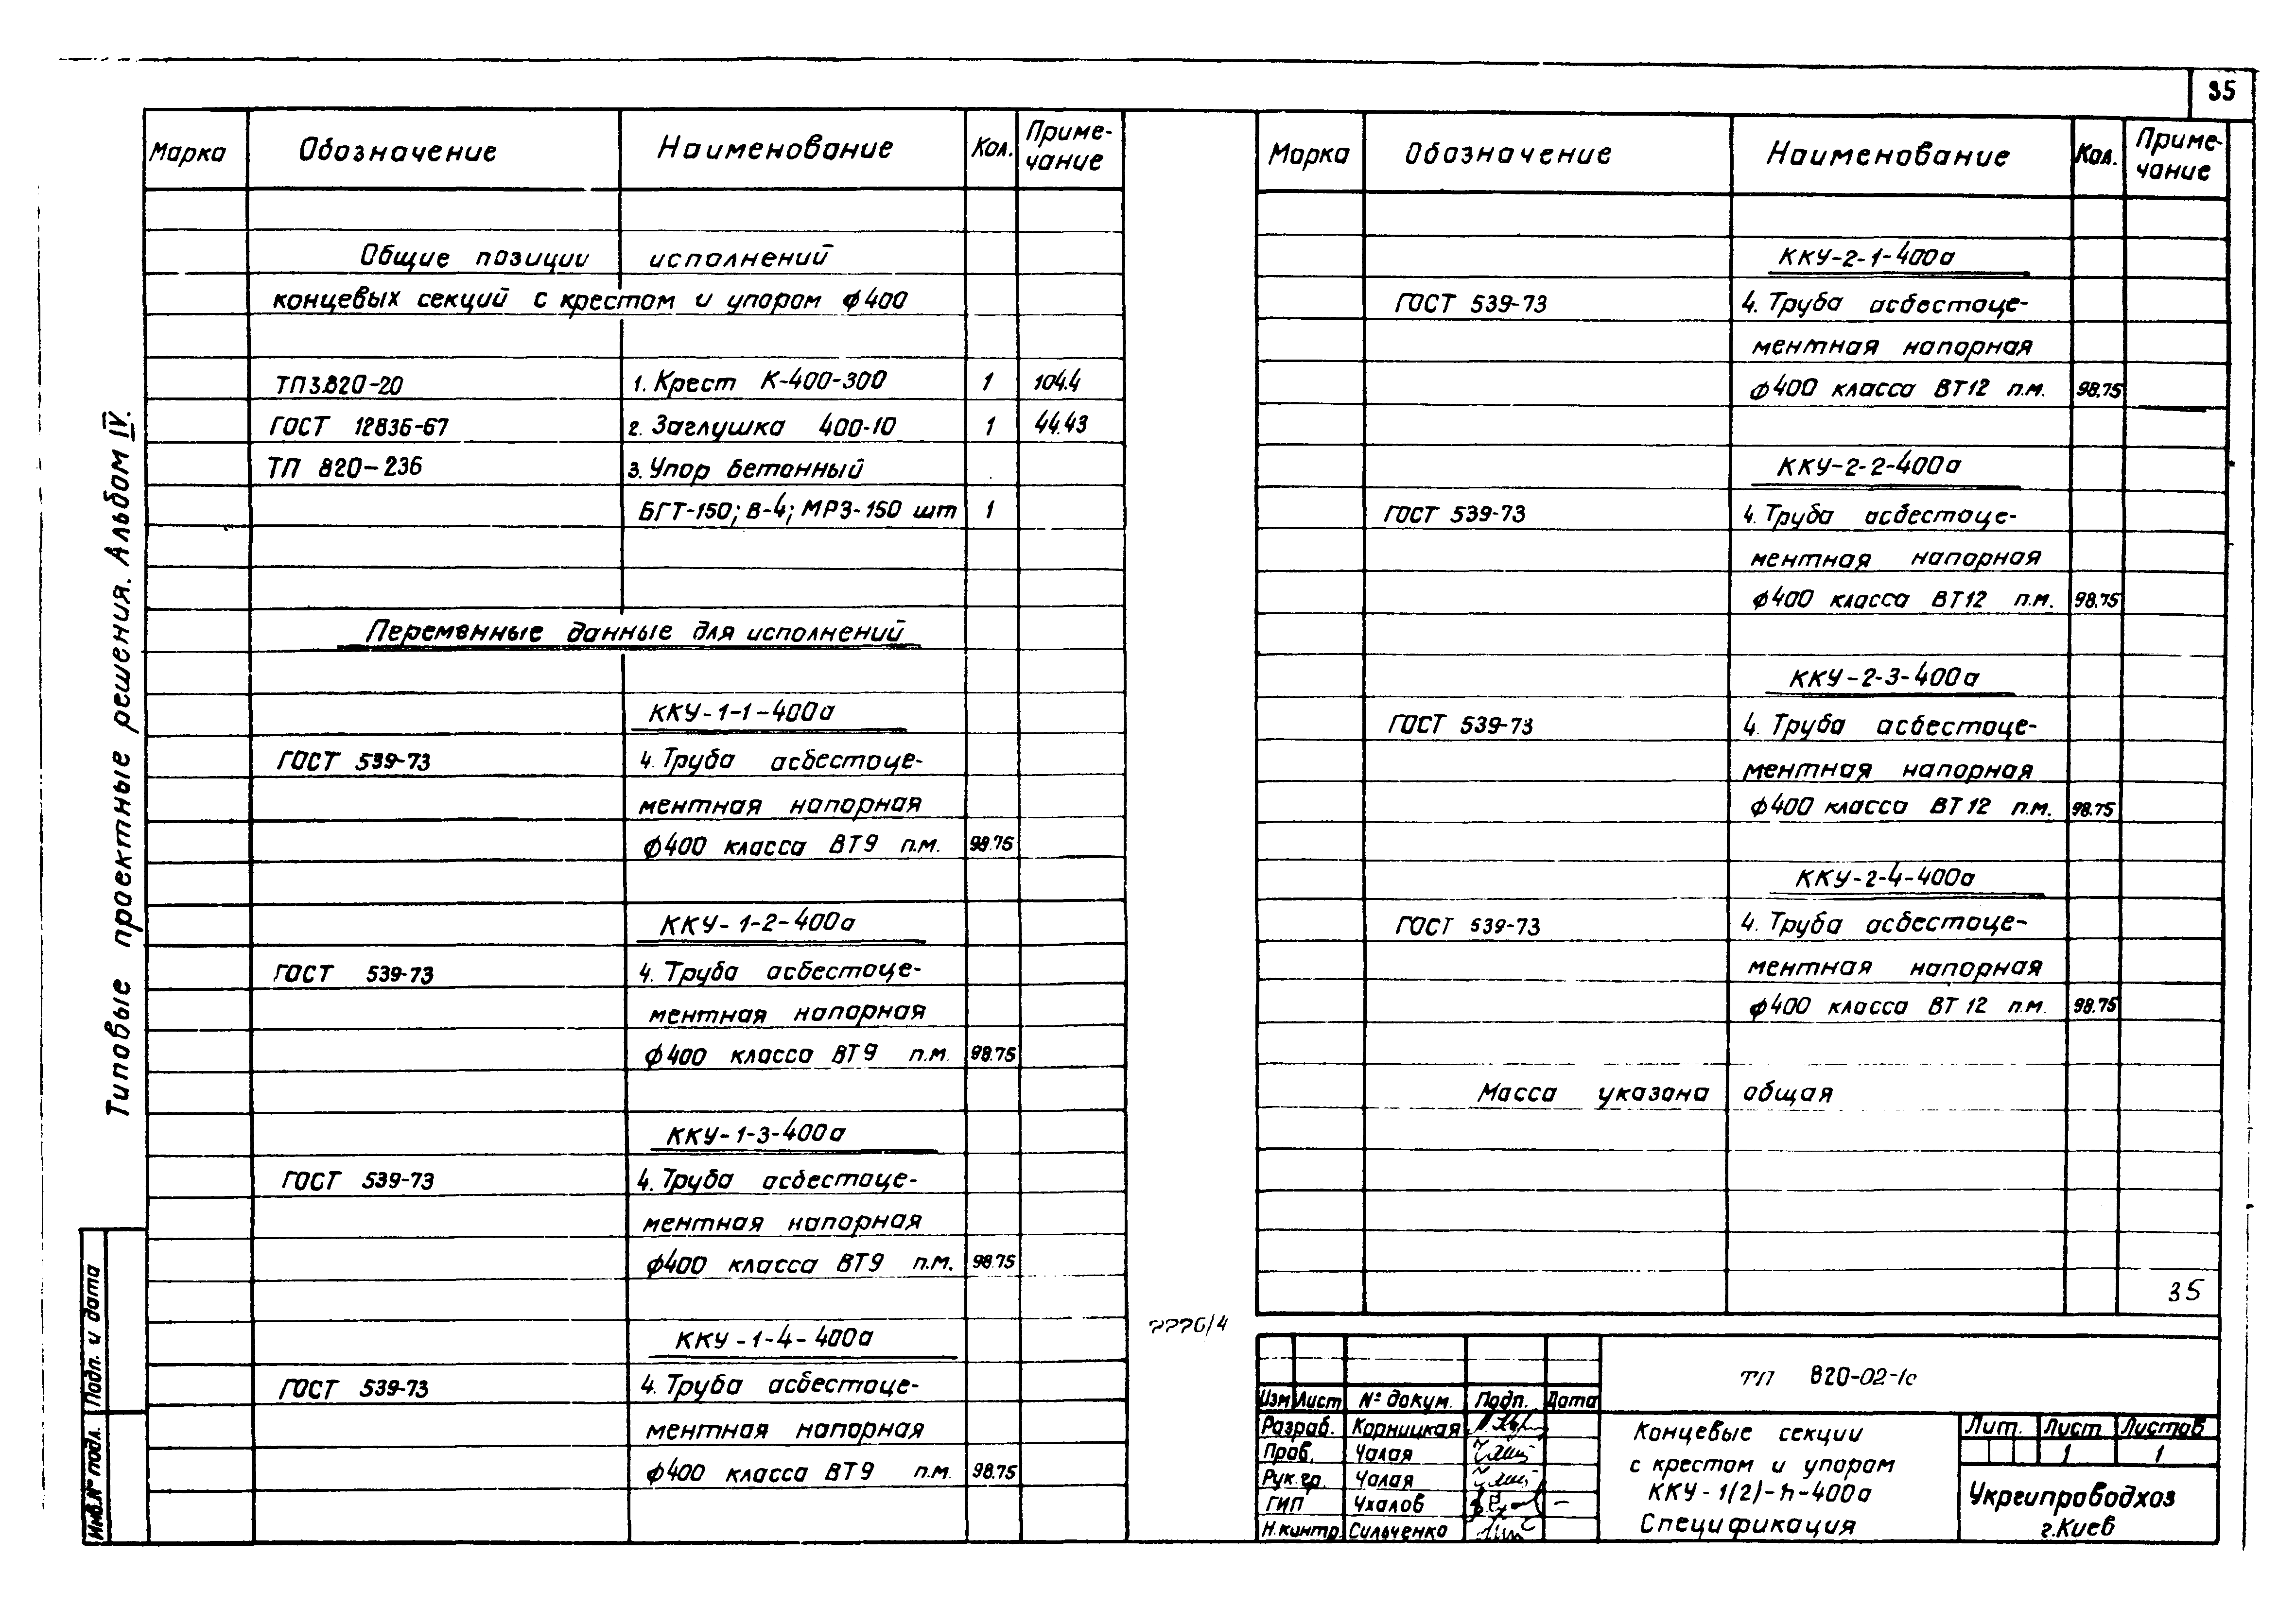 35
Типовые проектные решения. Альбом IV.
Марка Обозначение Наименование Кол. Приме-
чание
Общие позиции исполнений
концевых секций с крестом и упором ф400
ТП3.820-20 1. Крест К-400-300 1 104.4
ГОСТ 12836-67 2. Заглушка 400-10 1 44.43
ТП 820-236 3. Упор бетонный
БГТ-150; В-4; МРЗ-150 шт 1
Переменные данные для исполнений
ККУ-1-1-400а
ГОСТ 539-73 4. Труба асбестоце-
ментная напорная
ф400 класса ВТ9 п.м. 98.75
ККУ-1-2-400а
ГОСТ 539-73 4. Труба асбестоце-
ментная напорная
ф400 класса ВТ9 п.м. 98.75
ККУ-1-3-400а
ГОСТ 539-73 4. Труба асбестоце-
ментная напорная
ф400 класса ВТ9 п.м. 98.75
ККУ-1-4-400а
ГОСТ 539-73 4. Труба асбестоце-
ментная напорная
ф400 класса ВТ9 п.м. 98.75
Подп. и дата
Инв.№ подл.
Марка Обозначение Наименование Кол. Приме-
чание
ККУ-2-1-400а
ГОСТ 539-73 4. Труба асбестоце-
ментная напорная
ф400 класса ВТ12 п.м. 98.75
ККУ-2-2-400а
ГОСТ 539-73 4. Труба асбестоце-
ментная напорная
ф400 класса ВТ12 п.м. 98.75
ККУ-2-3-400а
ГОСТ 539-73 4. Труба асбестоце-
ментная напорная
ф400 класса ВТ12 п.м. 98.75
ККУ-2-4-400а
ГОСТ 539-73 4. Труба асбестоце-
ментная напорная
ф400 класса ВТ12 п.м. 98.75
Масса указана общая
35
ТП 820-02-1с
Изм Лист № докум. Подп. Дата
Разраб. Корницкая
Пров. Чалая
Рук.гр. Чалая
ГИП Чхалов
Н.контр. Сильченко
Концевые секции
с крестом и упором
ККУ-1(2)-n-400а
Спецификация
Лит. Лист Листов
1 1
Укргипроводхоз
г.Киев